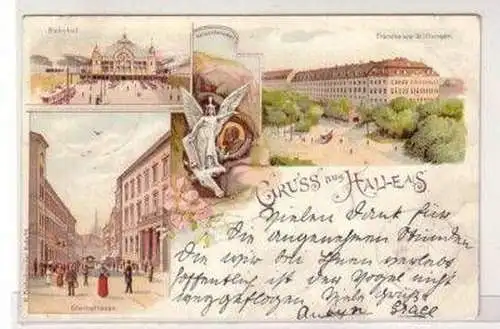 Bahnhof.
Francke'sche Stiftungen.
GRUSS aus HALLE A/S
Vielen Dank für
die angenehmen Stunden
die wir bei Ihnen verlebt
hoffentlich ist der Vogel nicht
weggeflogen. Viele Grüße